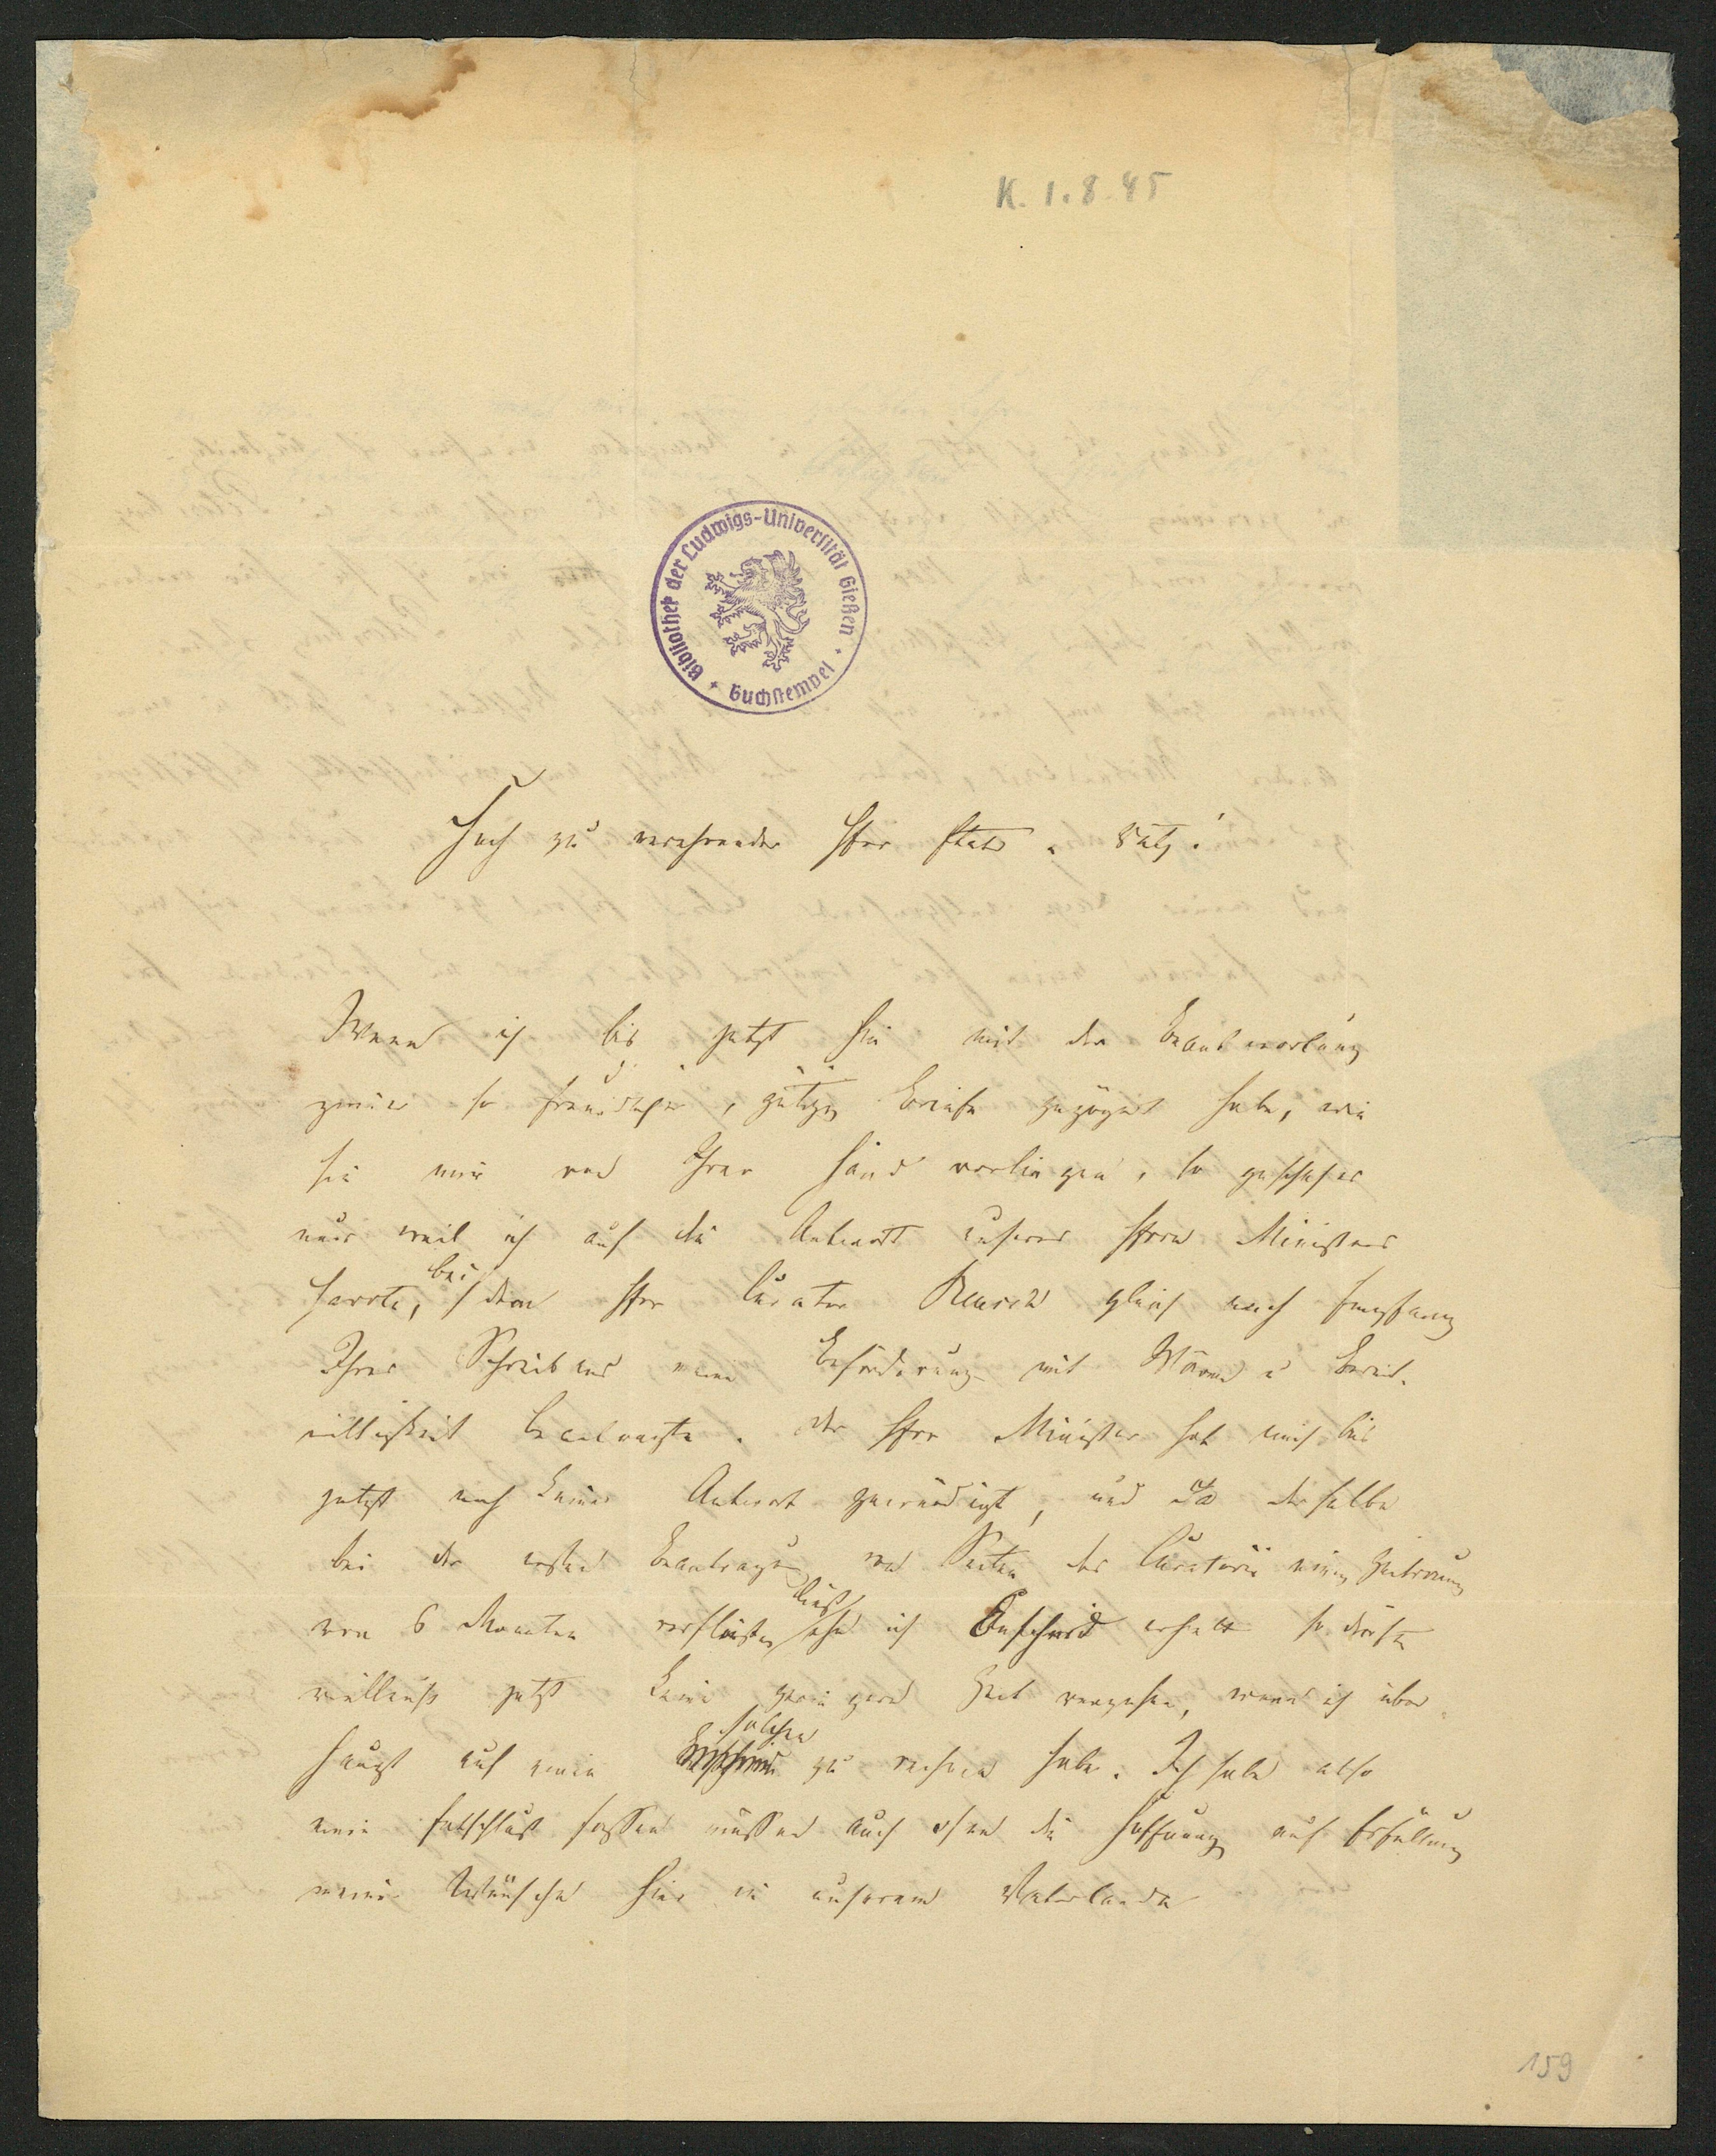 K. 1.8.45
Bibliothek der Ludwigs-Universität Gießen
Buchstempel
Hoch zu verehrender Herr Staats-Rath!
Wenn ich bis jetzt hin mit der Beantwortung
zweier so freundlicher, gütiger Briefe gezögert habe, wie
sie mir von Ihrer Hand vorliegen, so geschah es
nur weil ich auf die Antwort unseres Herrn Ministers
harrte, bei dem Herr Curator Reusch gleich nach Empfang
Ihres Schreibens meine Beförderung mit Wärme u Bereit-
willigkeit beantragte. Der Herr Minister hat mich bis
jetzt noch keiner Antwort gewürdigt, und da derselbe
bei der ersten Beantragung von Seiten des Curatorii einen Zeitraum
von 6 Monaten verfließen ließ ehe ich Bescheid erhielt so dürfte
vielleicht jetzt keine geringere Zeit vergehen, wenn ich über
haupt auf einen solchen zu rechnen habe. Ich habe also
meinen Entschluß fassen müssen auch ohne die Hoffnung auf Erfüllung
meiner Wünsche hier in unserem Vaterlande
159